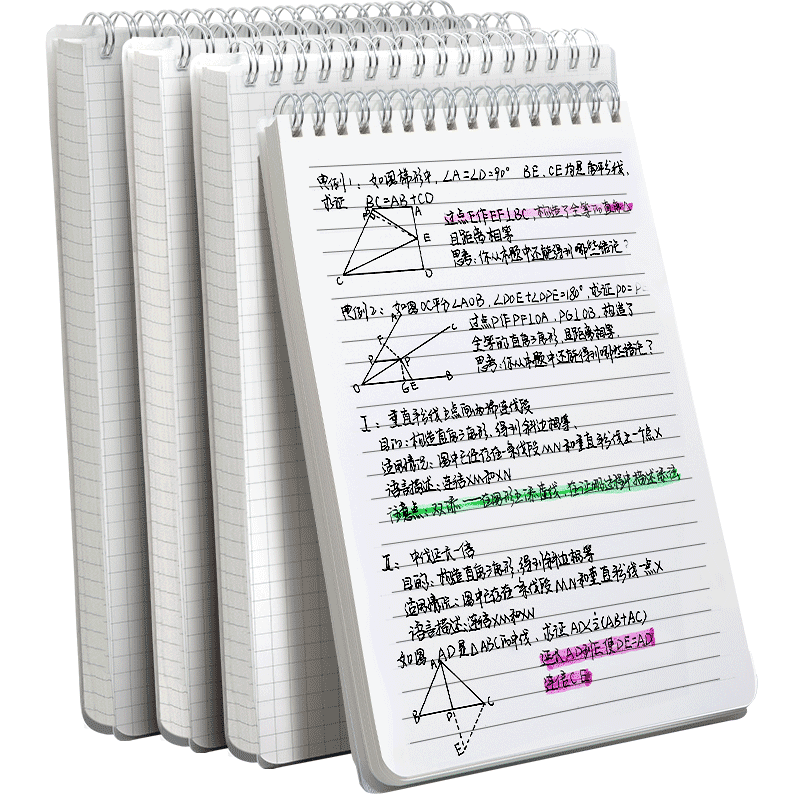 典例1：如图梯形中，∠A=∠D=90° BE、CE均是角平分线，
求证 BC=AB+CD
过点E作EF⊥BC，构造了全等的直角
且距离相等
思考：你从本题中还能得到哪些结论？
A
B
E
C
D
典例2：如图OC平分∠AOB，∠DOE+∠DPE=180°，求证PD=P
过点P作PF⊥OA，PG⊥OB，构造了
全等的直角三角形，且距离相等
思考：你从本题中还能得到哪些结论？
A
C
F
D
P
O
G E
B
I：垂直平分线上点向两端连线段
目的：构造直角三角形，得到斜边相等、
适用情况：图中已经存在一条线段MN和垂直平分线上一个点X
语言描述：连结XM和XN
注意点：双添——在图形上添虚线，在证明过程中描述添法
II：中线延长一倍
目的：构造直角三角形，得到斜边相等
适用情况：图中已存在一条线段MN和垂直平分线一点X
语言描述：连结XM和XN
如图 AD是△ABC的中线，求证 AD<½(AB+AC)
延长AD到E使DE=AD
连结CE
A
B
D
C
E